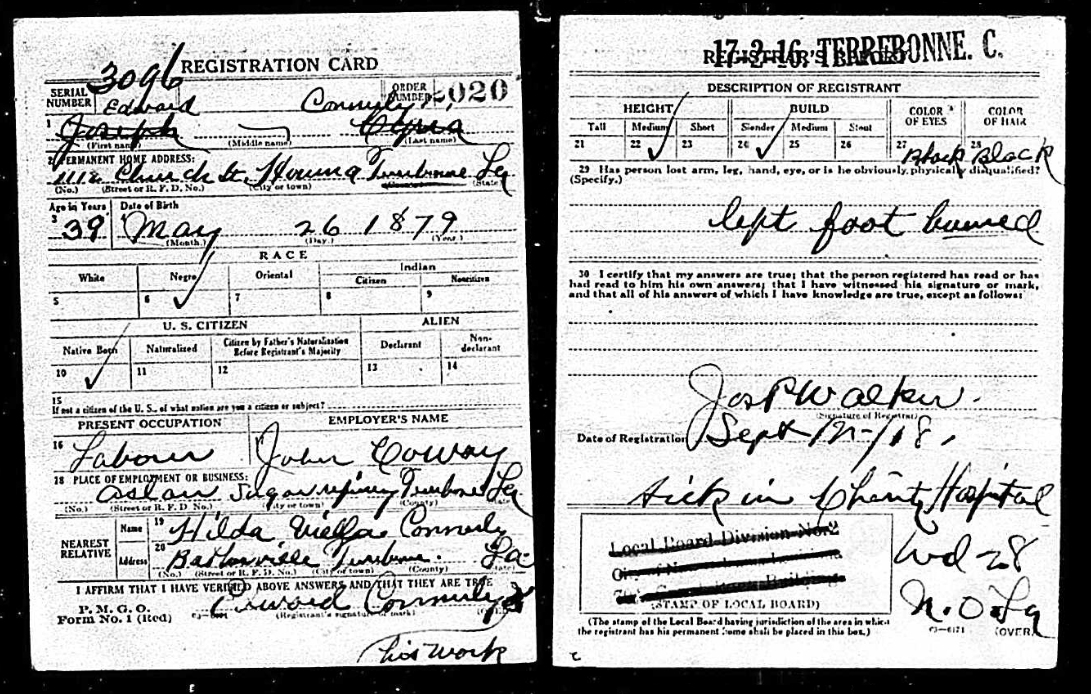 REGISTRATION CARD
SERIAL NUMBER 3096
ORDER NUMBER 2020
Edward Connerly
1 Joseph Cyria
(First name) (Middle name) (Last name)
2 PERMANENT HOME ADDRESS:
1118 Church St. Houma Terrebonne La
(No.) (Street or R. F. D. No.) (City or town) (State)
Age in Years Date of Birth
3 39 May 26 1879
(Month.) (Day.) (Year.)
RACE
White Negro Oriental Indian
Citizen Noncitizen
5 6 ✓ 7 8 9
U. S. CITIZEN ALIEN
Native Born Naturalized Citizen by Father's Naturalization Before Registrant's Majority Declarant Non-declarant
10 ✓ 11 12 13 14
15
If not a citizen of the U. S., of what nation are you a citizen or subject?
PRESENT OCCUPATION EMPLOYER'S NAME
16 Labour John
18 PLACE OF EMPLOYMENT OR BUSINESS:
Sugar refinery Terrebonne La
(No.) (Street or R. F. D. No.) (City or town) (County) (State)
NEAREST RELATIVE
Name 19 Hilda Connerly
Address 20 Terrebonne La
(No.) (Street or R. F. D. No.) (City or town) (County) (State)
I AFFIRM THAT I HAVE VERIFIED ABOVE ANSWERS AND THAT THEY ARE TRUE
P. M. G. O.
Form No. 1 (Red)
Edward Connerly X
(Registrant's signature or mark)
his mork
17-2-16. TERREBONNE. C.
REGISTRAR'S REPORT
DESCRIPTION OF REGISTRANT
HEIGHT BUILD COLOR OF EYES COLOR OF HAIR
Tall Medium Short Slender Medium Stout
21 22 ✓ 23 24 ✓ 25 26 27 Black 28 Black
29 Has person lost arm, leg, hand, eye, or is he obviously physically disqualified?
(Specify.)
left foot burned
30 I certify that my answers are true; that the person registered has read or has
had read to him his own answers; that I have witnessed his signature or mark,
and that all of his answers of which I have knowledge are true, except as follows:
Jos P Walker.
(Signature of Registrar)
Date of Registration Sept 12-/18.
Sick in Charity Hospital
Local Board Division No. 2
Wd 28
(STAMP OF LOCAL BOARD)
N. O. La
(The stamp of the Local Board having jurisdiction of the area in which
the registrant has his permanent home shall be placed in this box.)
(OVER)